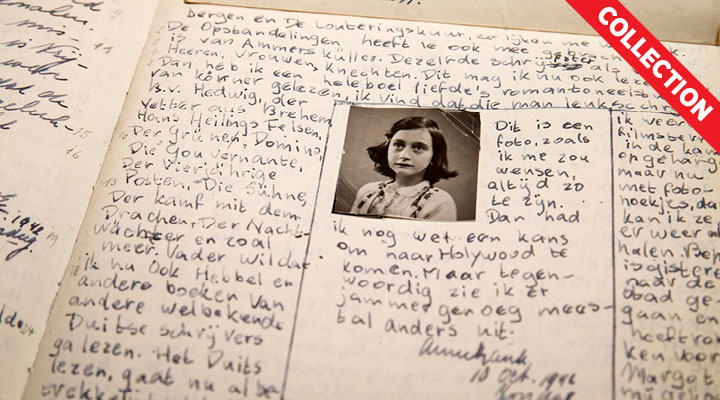 bergen en De Louteringskuur, zo lijken me
De Opstandelingen heeft ie ook mee
is van Ammers Küller. Dezelfde schrijfster als
Heeren, Vrouwen, Knechten. Dit mag ik nu ook lezen
Dan heb ik een heleboel liefde's romantoneelst
van körner gelezen, ik vind dat die man leuk schr
B.v. Hedwig, der
Vetter aus Brehem,
Hans Heilings Felsen,
Der Grüner Domino,
Die Gouvernante,
Der Vierjährige
Posten, Die Sühne,
Der Kampf mit dem
Drachen, Der Nacht-
wächter en zoal
meer. Vader wil dat
ik nu ook Hebbel en
andere boeken van
andere welbekende
Duitse schrijvers
ga lezen. Het Duits
lezen, gaat nu al be-
trekkelijk
Dit is een
foto, zoals
ik me zou
wensen,
altijd zo
te zijn.
Dan had
ik nog wel een kans
om naar Holywood te
komen. Maar tegen-
woordig zie ik er
jammer genoeg mees-
tal anders uit.
Annefrank
10 Oct. 1942
ik weer
filmster
in de kam
opgehang
maar nu
met foto-
hoekjes, da
kan ik ze
er weer a
halen. Bep
is gister
naar de
stad ge-
gaan en
heeft ro
ken voor
Margot
COLLECTION